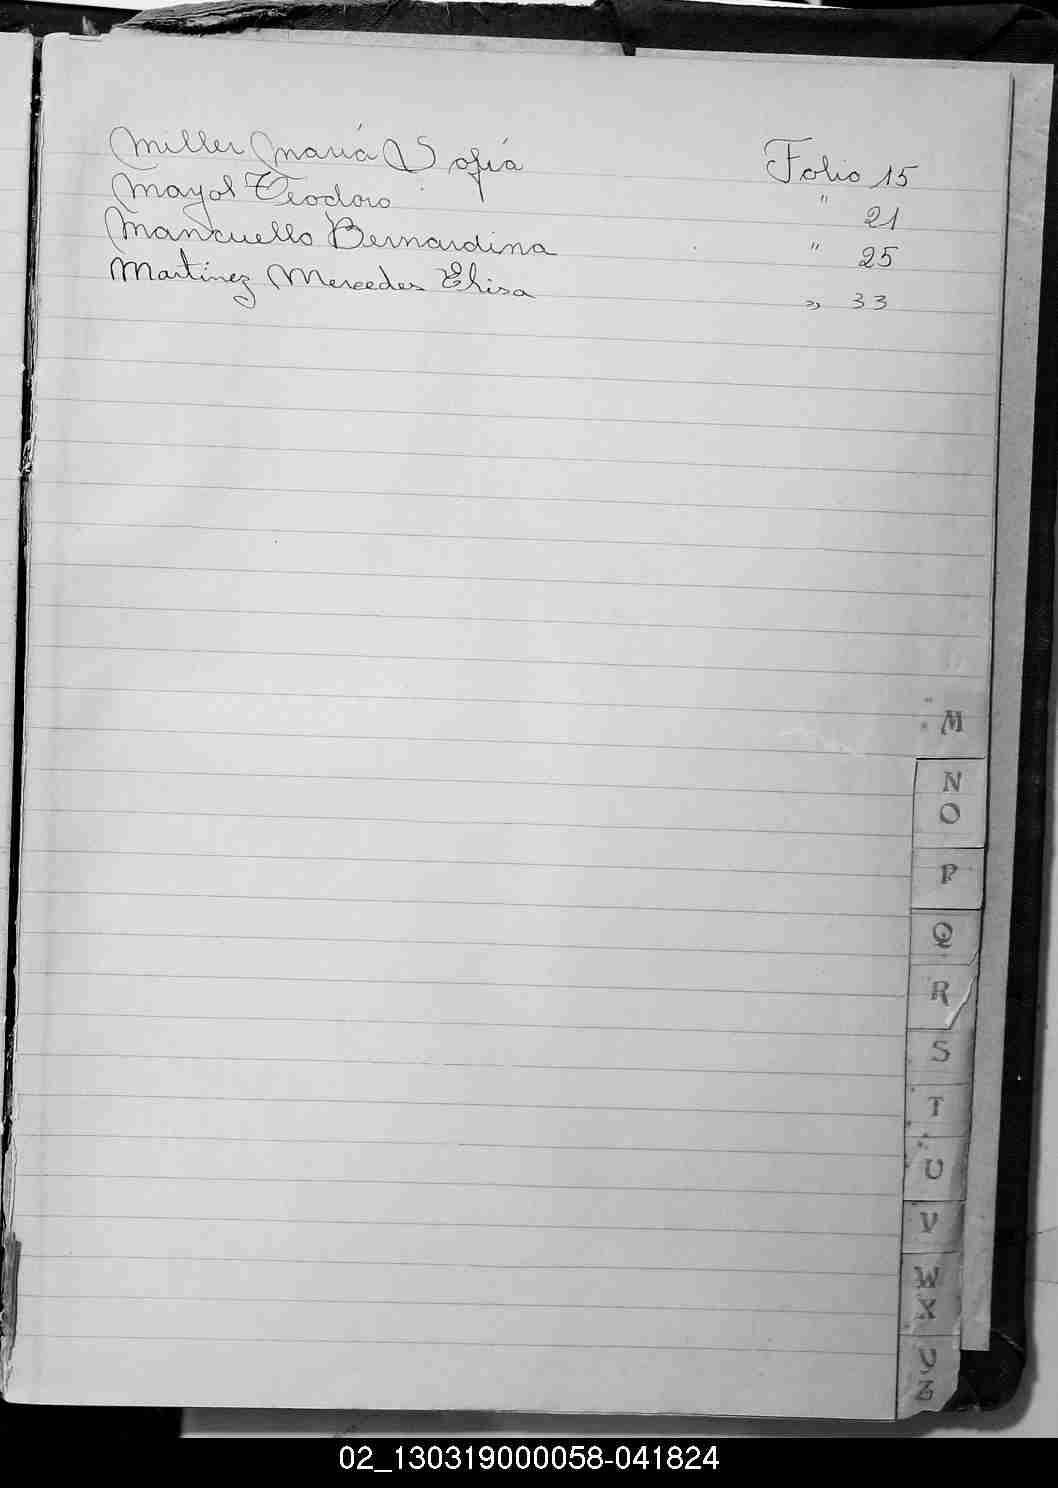 Miller María Sofía Folio 15
Mayol Teodoro " 21
Mancuello Bernardina " 25
Martínez Mercedes Elisa " 33
M
N
O
P
Q
R
S
T
U
V
W
X
Y
Z
02_130319000058-041824